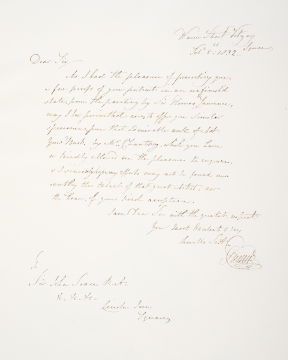 Warren Street Fitzroy
Feb 8th 1832. Square
Dear Sir,
As I had the pleasure of furnishing you
a few proofs of your portrait in an unfinished
state from the painting by Sir Thomas Lawrence,
may I be permitted now to offer you similar
specimens from that admirable work of Art
Your Bust, by Mr. Chantrey, which you have
so kindly allowed me the pleasure to engrave,
& I sincerely hope my efforts may not be found un
worthy the talent of that great Artist, or
the honor of your kind acceptance.
I am Dear Sir with the greatest respect
Your most obedient &
humble Servt
To
Sir John Soane R.A.
Lincoln's Inn